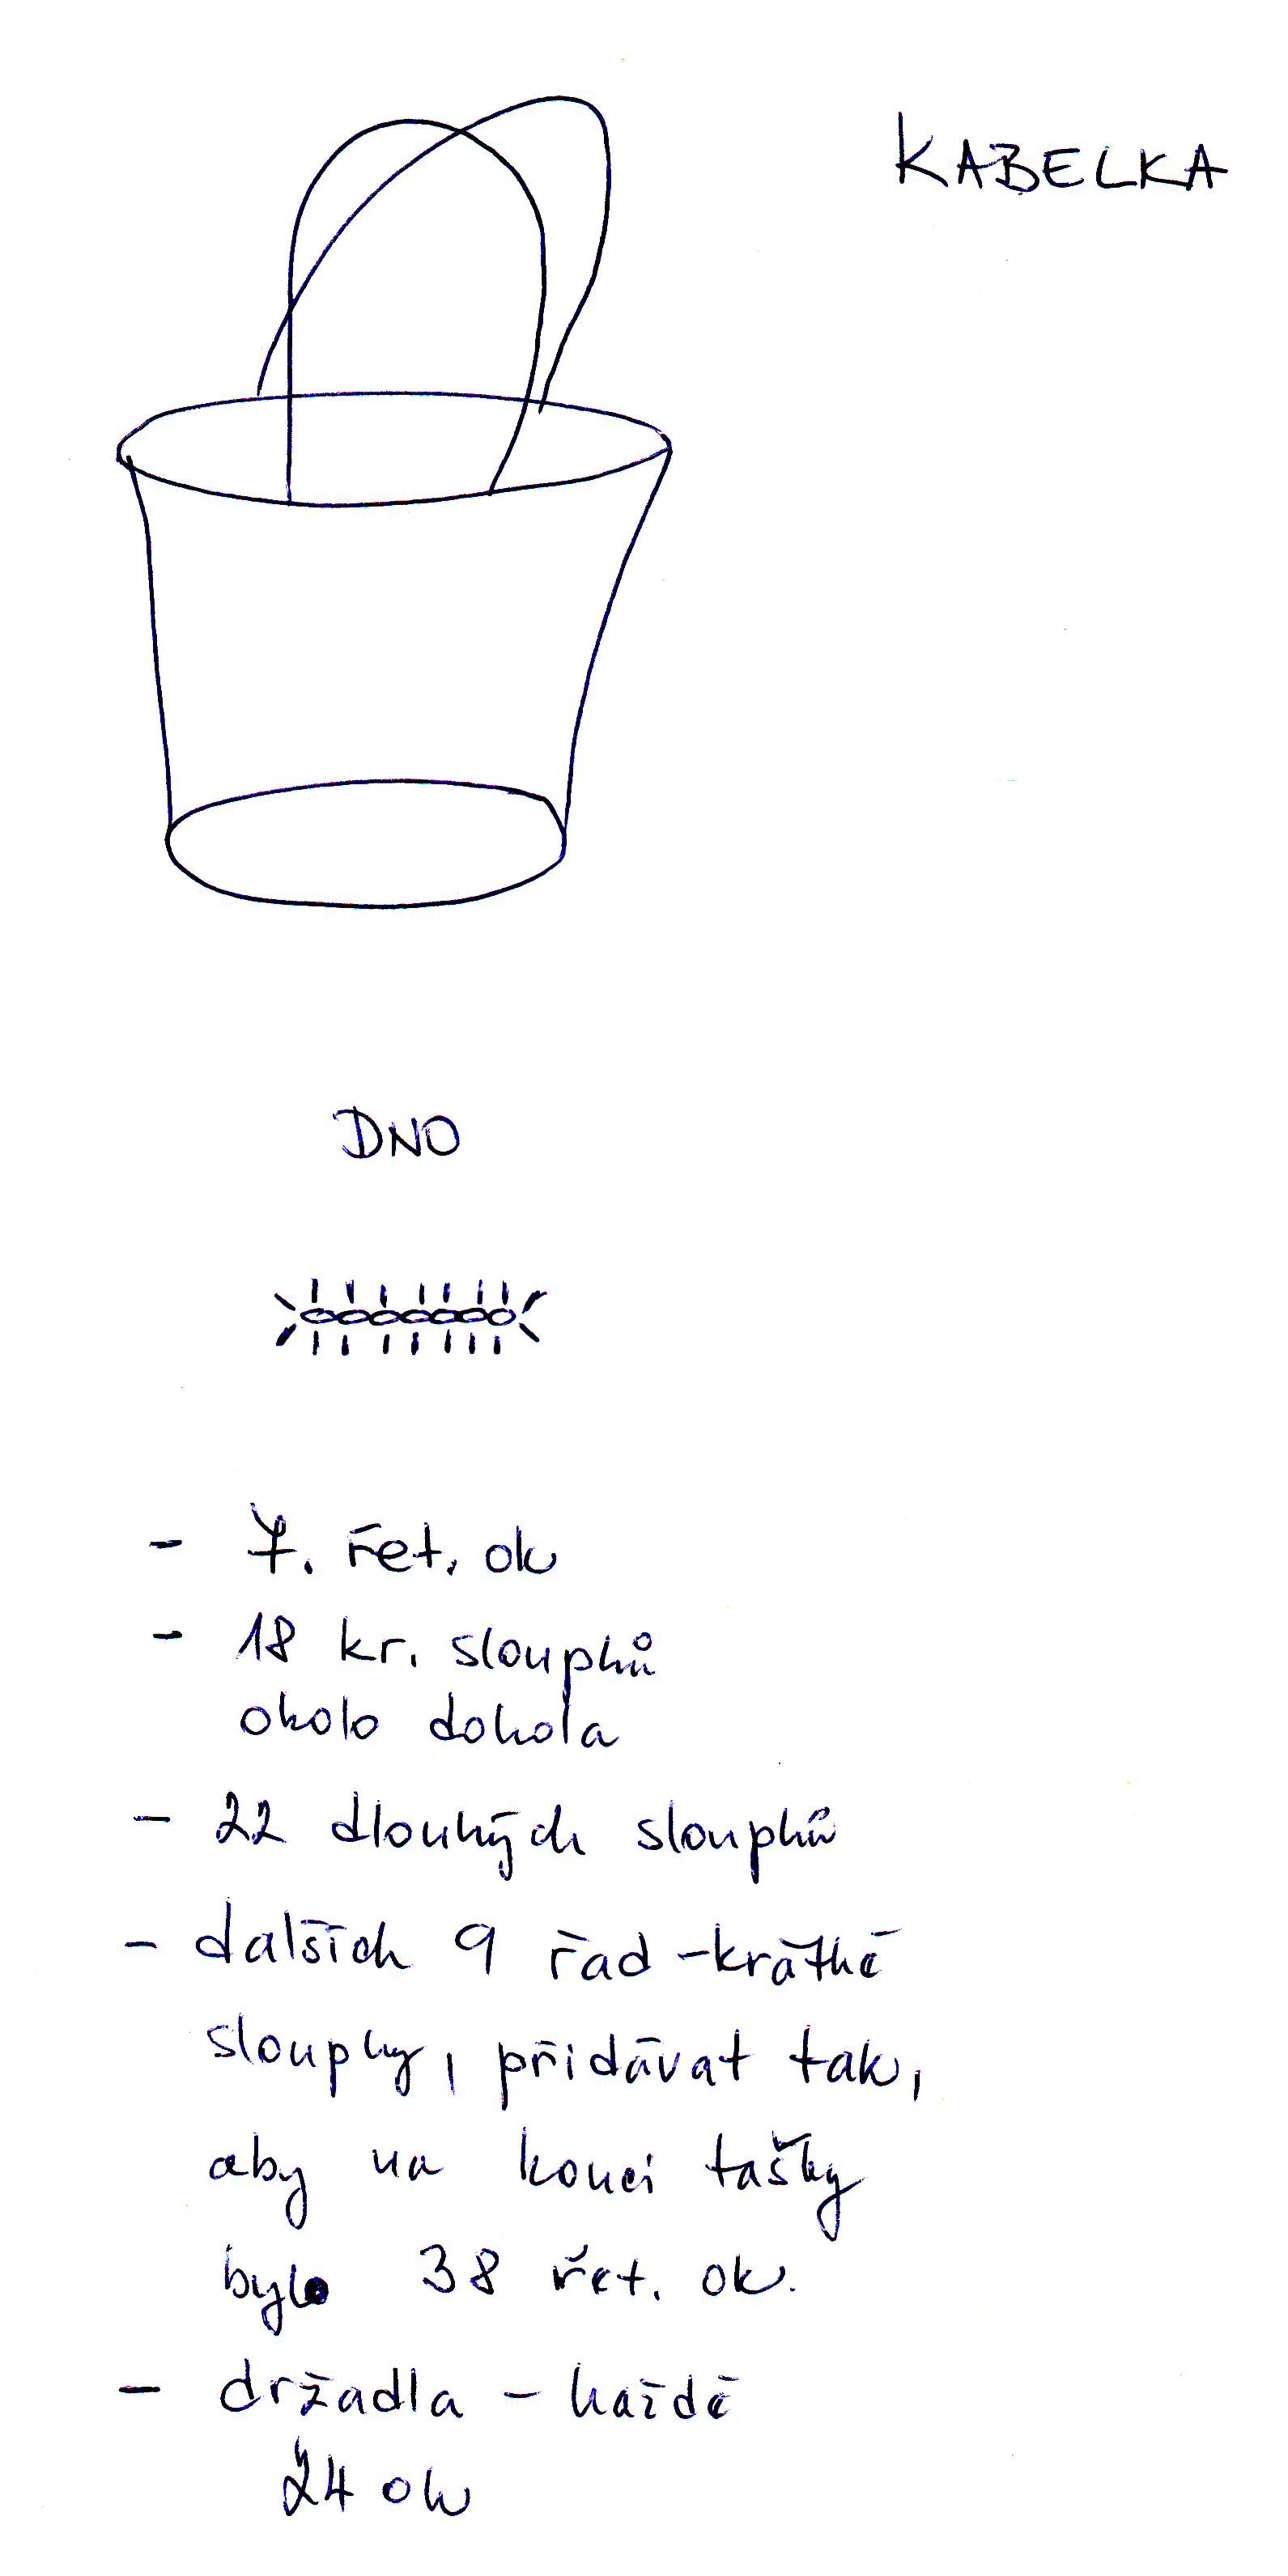 KABELKA
DNO
- 7. řet. ok
- 18 kr. sloupků
okolo dokola
- 22 dlouhých sloupků
- dalších 9 řad - krátké
sloupky, přidávat tak,
aby na konci tašky
bylo 38 řet. ok.
- držadla - každé
24 ok